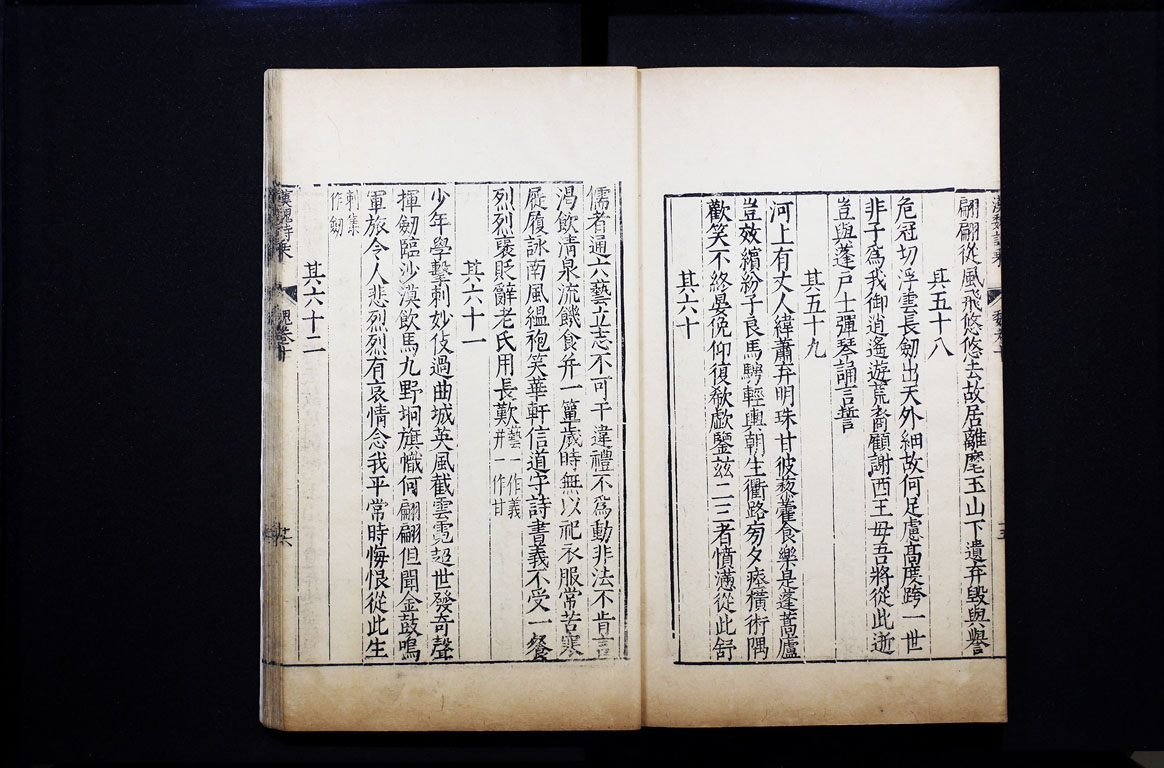 漢魏詩乘
翩翩從風飛悠悠去故居離麾玉山下遺弃毀與譽
其五十八
危冠切浮雲長劒出天外細故何足慮高度跨一世
非子爲我御逍遙遊荒裔顧謝西王母吾將從此逝
豈與蓬戸士彈琴誦言誓
其五十九
河上有丈人緯蕭弃明珠甘彼藜藿食樂是蓬蒿廬
豈效繽紛子良馬騁輕輿朝生衢路旁夕瘞橫術隅
歡笑不終晏俛仰復欷歔鑒兹二三者憤懣從此舒
其六十
儒者通六藝立志不可干違禮不爲動非法不肯言
渴飲清泉流饑食并一簞歲時無以祀衣服常苦寒
屣履詠南風緼袍笑華軒信道守詩書義不受一餐
烈烈襃貶辭老氏用長歎
藝一作義
并一作甘
其六十一
少年學擊刺妙伎過曲城英風截雲霓超世發奇聲
揮劒臨沙漠飲馬九野坰旗幟何翩翩但聞金鼓鳴
軍旅令人悲烈烈有哀情念我平常時悔恨從此生
刺集
作劒
其六十二
漢魏詩乘